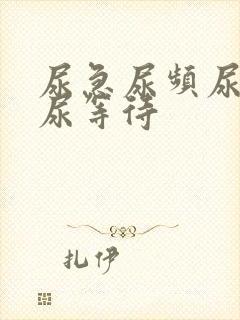 尿急尿频尿
尿等待
扎伊